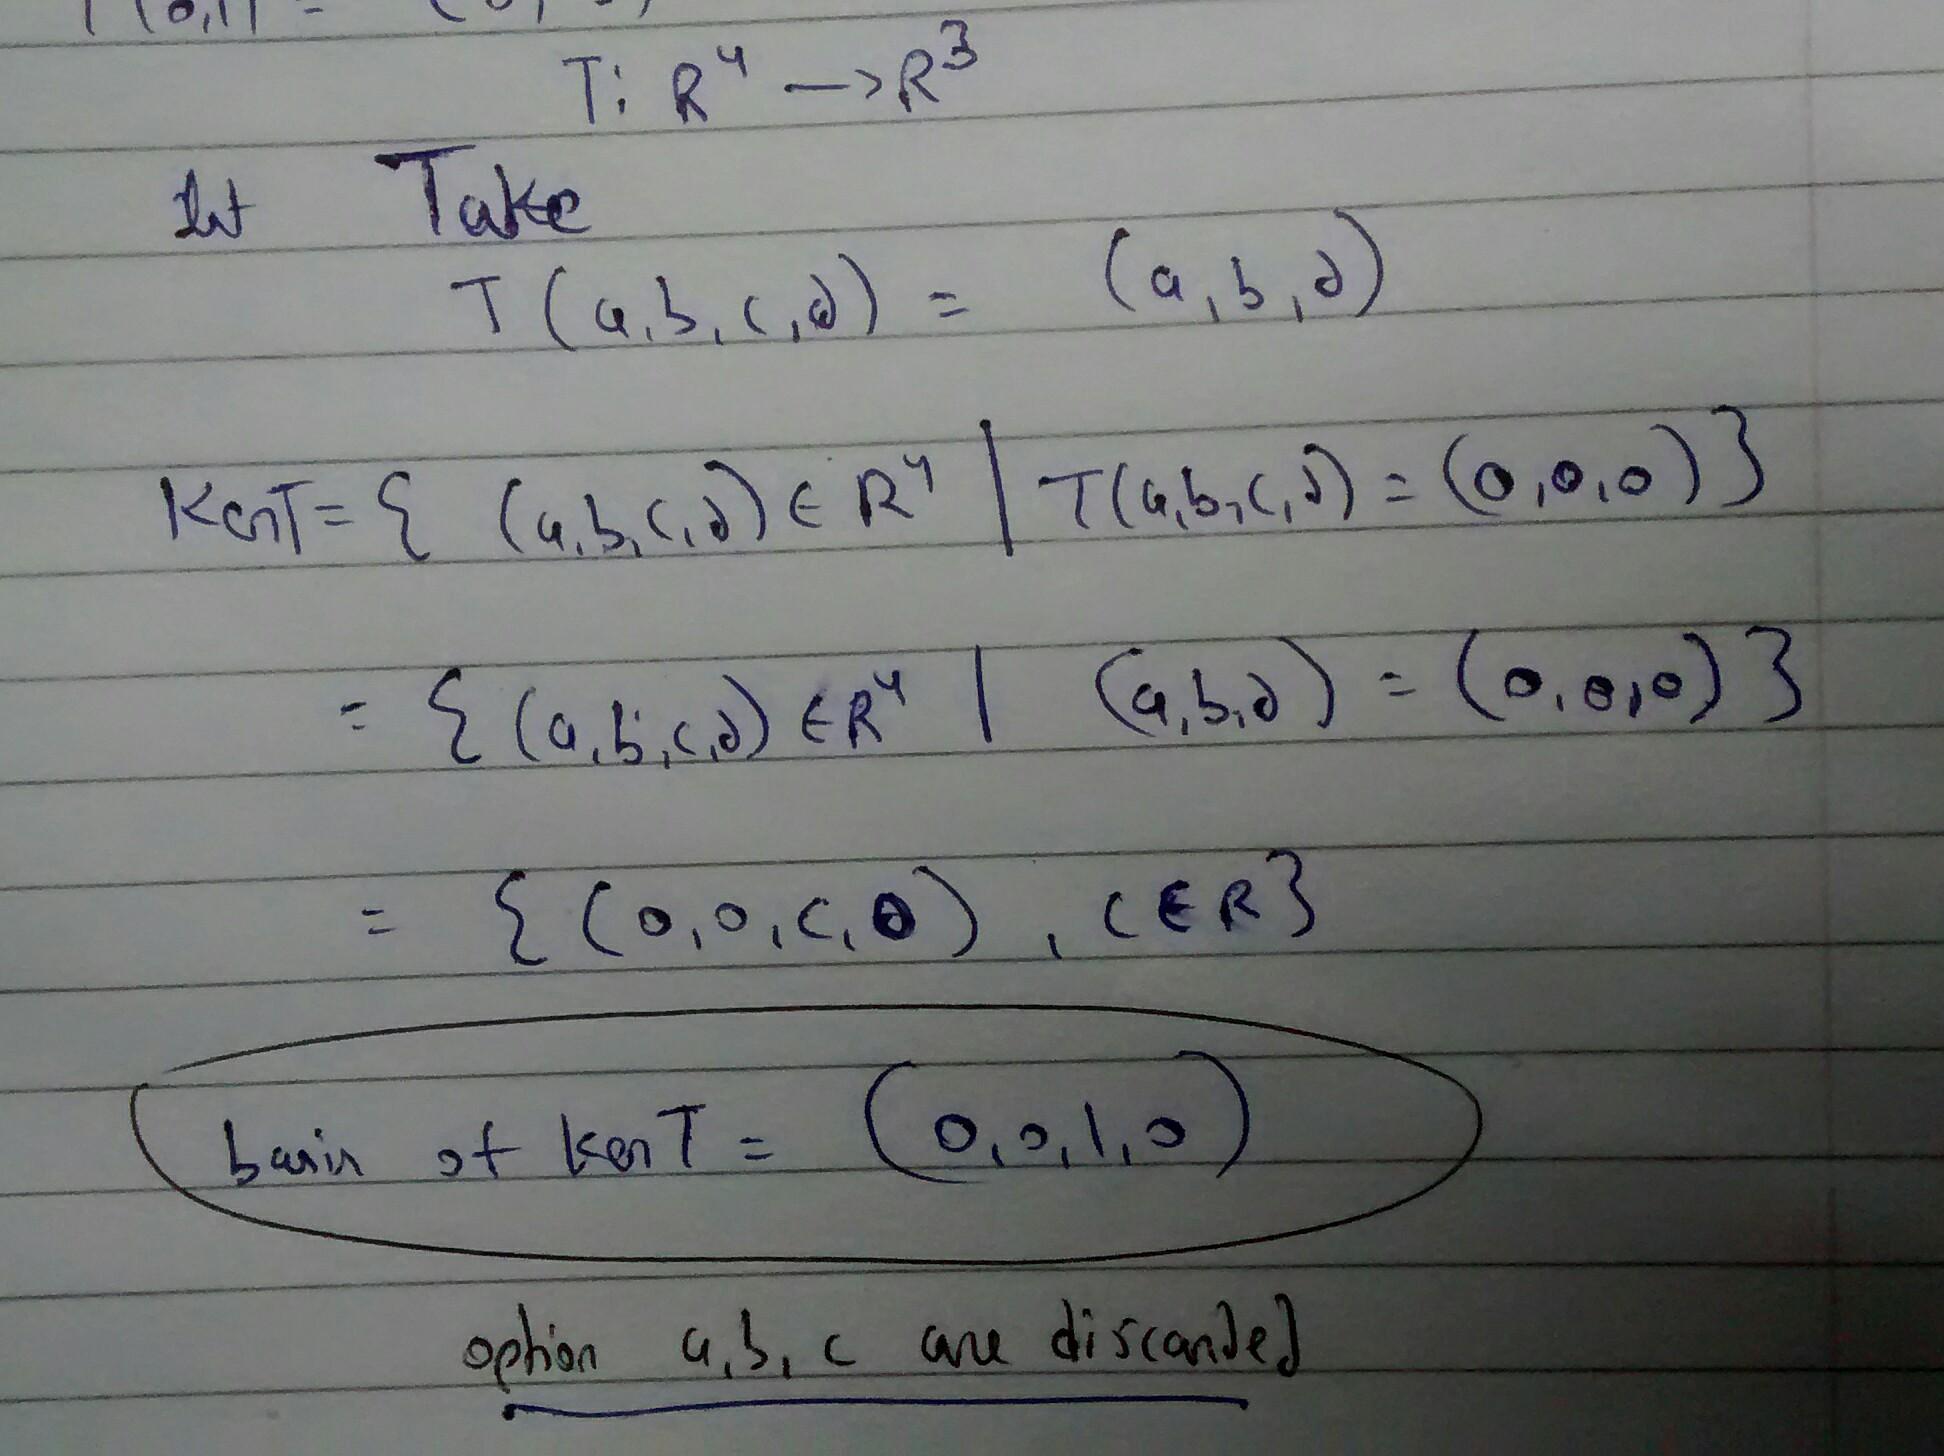 T: R⁴ → R³
let Take
T(a,b,c,d) = (a,b,d)
KerT = { (a,b,c,d) ∈ R⁴ | T(a,b,c,d) = (0,0,0) }
= { (a,b,c,d) ∈ R⁴ | (a,b,d) = (0,0,0) }
= { (0,0,c,0) , c ∈ R }
basis of kerT = (0,0,1,0)
option a,b,c are discarded